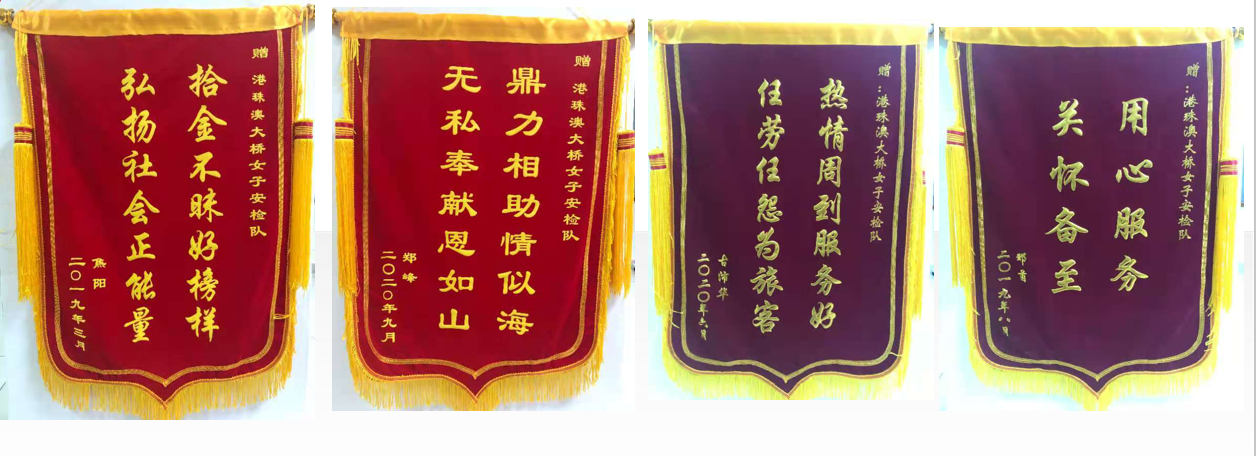 赠 港珠澳大桥女子安检队
拾金不昧好榜样
弘扬社会正能量
焦阳
二〇一九年三月
赠 港珠澳大桥女子安检队
鼎力相助情似海
无私奉献恩如山
郑峰
二〇二〇年九月
赠：港珠澳大桥女子安检队
热情周到服务好
任劳任怨为旅客
二〇二〇年六月
赠：港珠澳大桥女子安检队
用心服务
关怀备至
二〇一九年八月